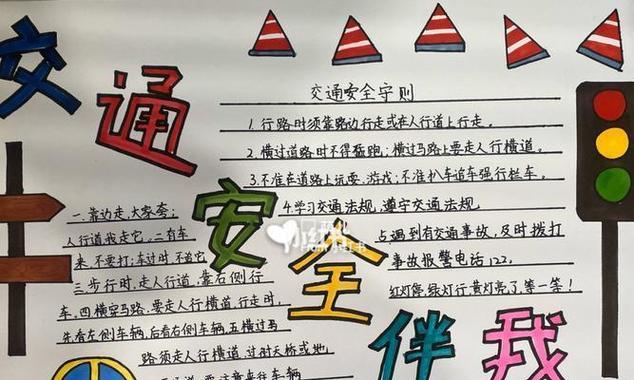 交通安全伴我
交通安全守则
1.行路时须靠路边行走或在人行道上行走。
2.横过道路时不得猛跑;横过马路要走人行横道。
3.不准在道路上玩耍、游戏;不准扒车追车强行拦车。
4.学习交通法规,遵守交通法规
点遇到有交通事故,及时拨打
事故报警电话,122,
红灯停,绿灯行,黄灯亮了,等一等!
一.靠边走,大家夸;
人行道我走它。二有车
来,不要打;车过时,不追它
三步行时,走人行道,靠右侧行
车,四横穿马路,要走人行横道,行走时,
先看左侧车辆,后看右侧车辆,五横过马
路须走人行横道,过街天桥或地
要注意来往车辆